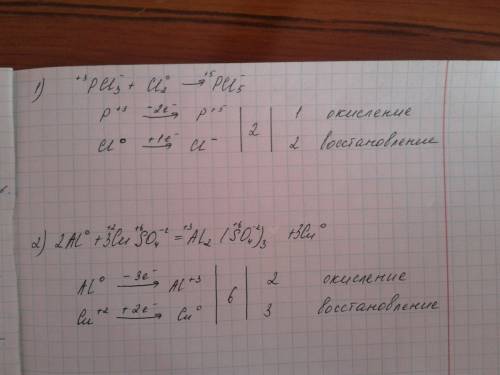 1) ⁺³PCl₃⁻ + Cl₂⁰ → ⁺⁵PCl₅⁻
P⁺³ —-2e⁻→ P⁺⁵ | 2 | 1 окисление
Cl⁰ —+1e⁻→ Cl⁻ | 2 | 2 восстановление
2) 2Al⁰ + 3Cu⁺²S⁺⁶O₄⁻² = Al⁺³₂(S⁺⁶O₄⁻²)₃ +3Cu⁰
Al⁰ —-3e⁻→ Al⁺³ | 6 | 2 окисление
Cu⁺² —+2e⁻→ Cu⁰ | 6 | 3 восстановление